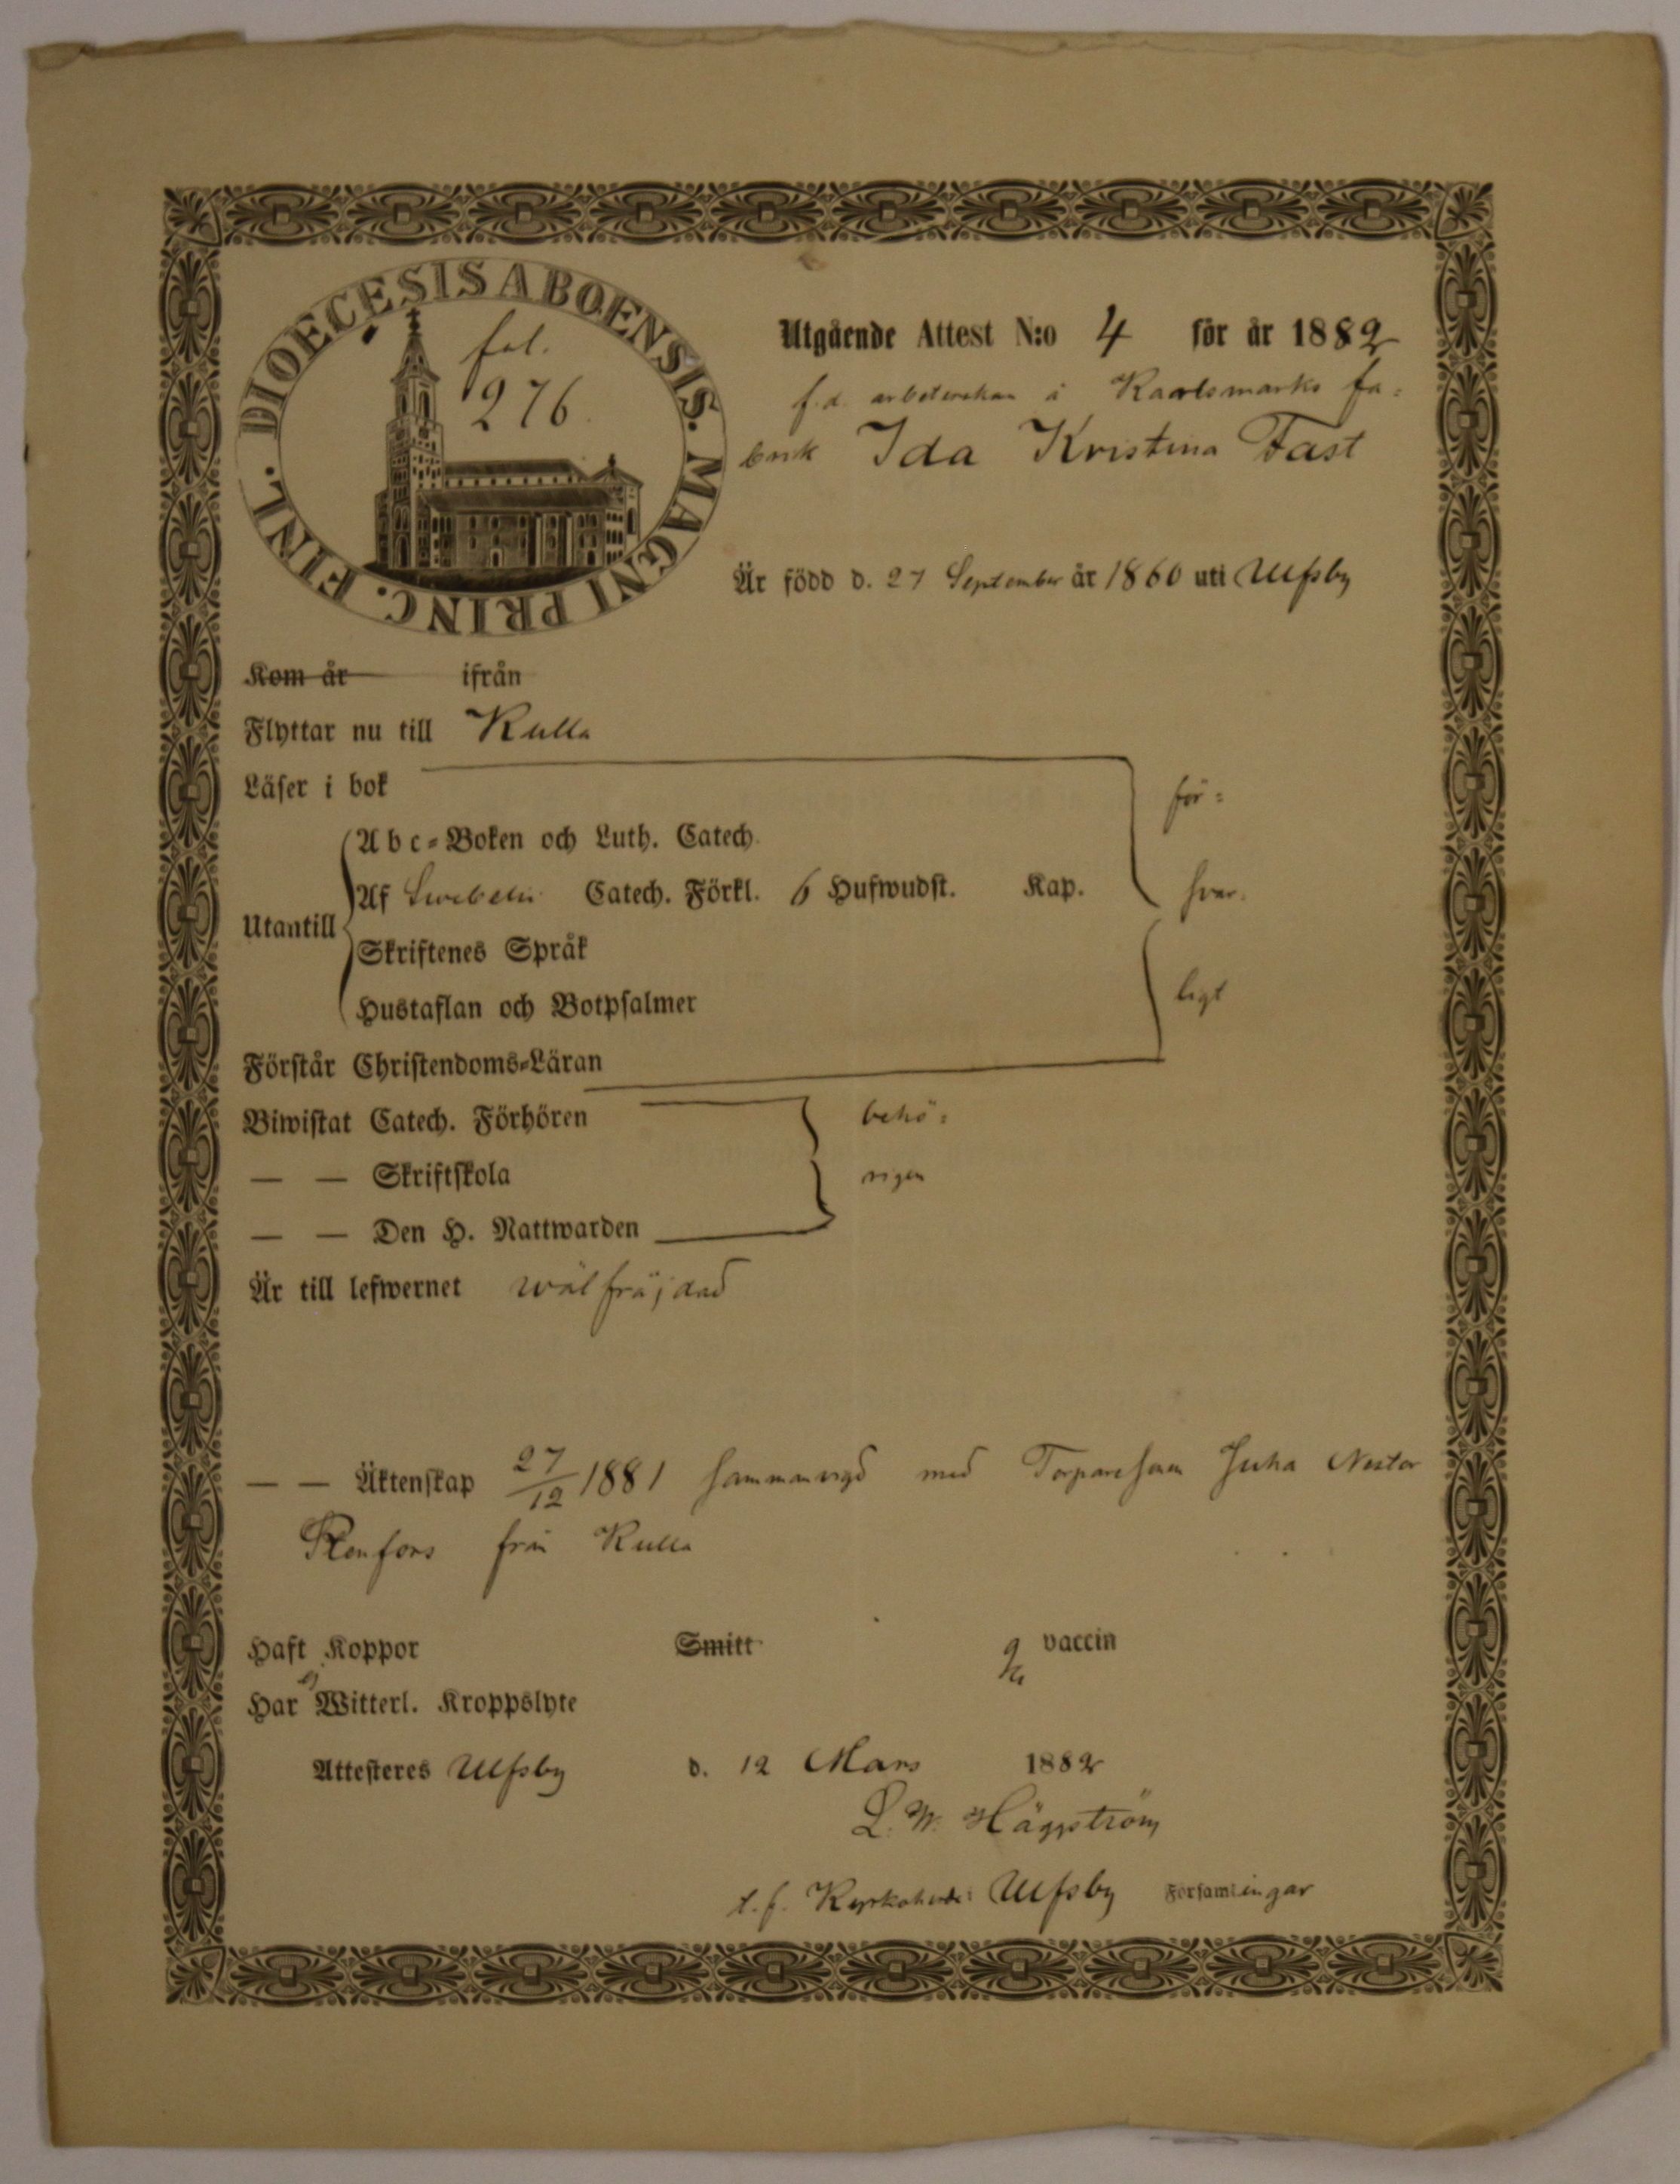 DIOECESIS ABOENSIS. MAGNI PRINC. FINL.
fol.
276.
Utgående Attest N:o 4 för år 1882
f.d. arbeterskan å Kaarlsmarks fa=
brik Ida Kristina Fast
Är född d. 27 September år 1860 uti Ulfsby
Kom år ifrån
Flyttar nu till Kulla
Läser i bok
för=
Abc=Boken och Luth. Catech.
Utantill Af Swebelii Catech. Förkl. 6 Hufwudst. Kap.
svar.
Skriftenes Språk
ligt
Hustaflan och Botpsalmer
Förstår Christendoms=Läran
Biwistat Catech. Förhören behö=
— — Skriftskola rigen
— — Den H. Nattwarden
Är till lefwernet wälfräjdad
— — Äktenskap 27/12 1881 sammanvigd med Torparesonen Juha Nestor
Renfors från Kulla
Haft Koppor Smitt vaccin
Har ej Witterl. Kroppslyte
Attesteres Ulfsby d. 12 Mars 1882
L. W. Häggström
t.f. Kyrkoherde i Ulfsby Församlingar